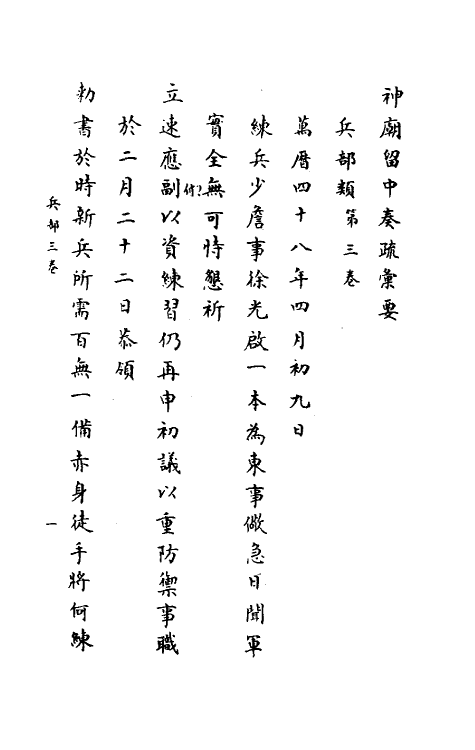 神廟留中奏疏彙要
兵部類第三卷
萬曆四十八年四月初九日
練兵少詹事徐光啟一本為東事儆急日聞軍
實全無可恃懇祈
立速應副以資練習仍再申初議以重防禦事職
付?
於二月二十二日恭領
勅書於時新兵所需百無一備赤身徒手將何練
兵部三卷
一